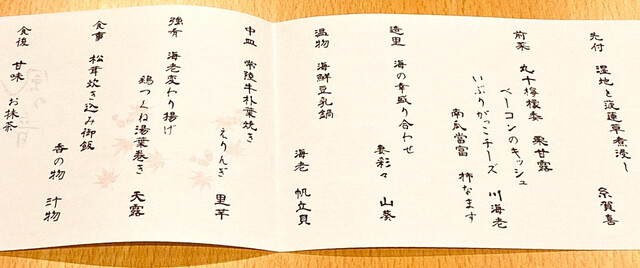 先付 湿地と菠薐草煮浸し 糸賀喜
前菜 丸十檸檬煮 栗甘露
ベーコンのキッシュ 川海老
いぶりがっこチーズ
南瓜當富 柿なます
造里 海の幸盛り合わせ
妻彩々 山葵
温物 海鮮豆乳鍋
海老 帆立貝
中皿 常陸牛朴葉焼き
えりんぎ 里芋
強肴 海老変わり揚げ
鶏つくね湯葉巻き 天露
食事 松茸炊き込み御飯
香の物 汁物
食後 甘味 お抹茶